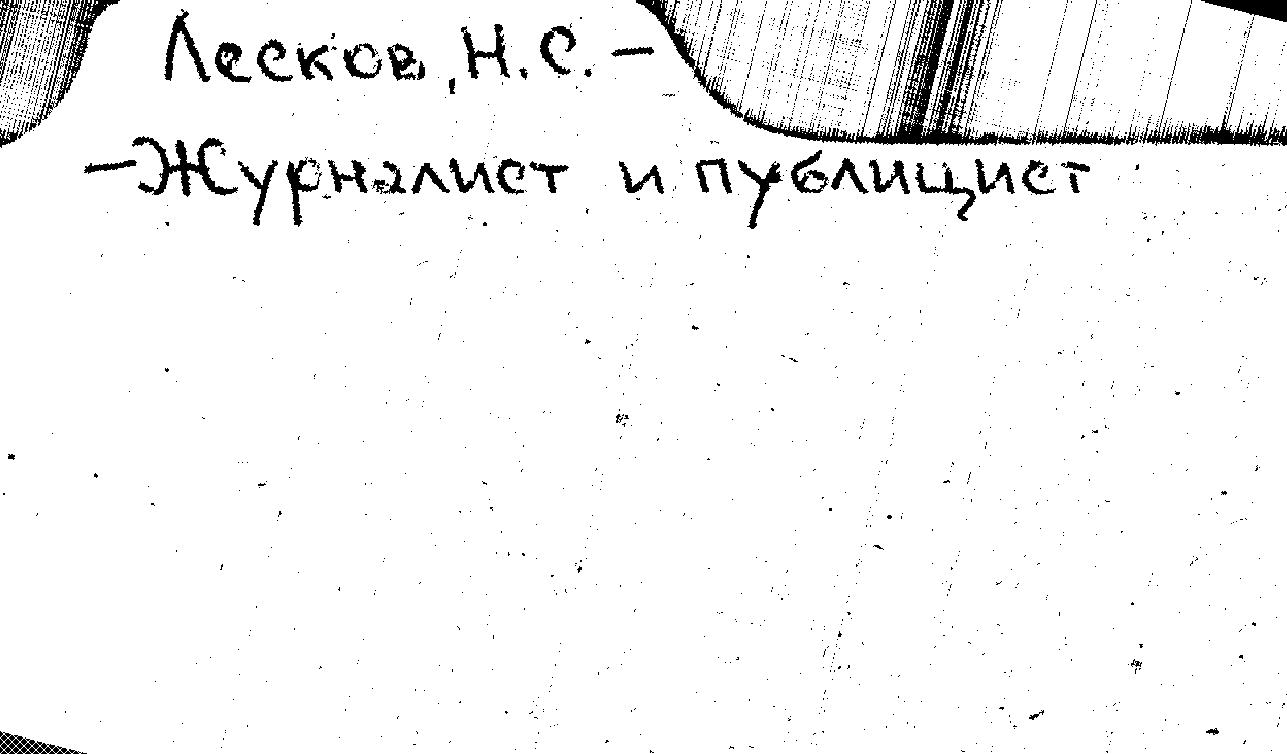 Лесков, Н.С. –
– Журналист и публицист